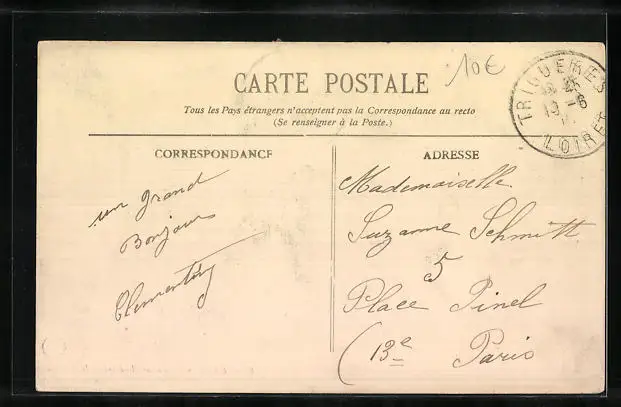 10€
CARTE POSTALE
Tous les Pays étrangers n'acceptent pas la Correspondance au recto
(Se renseigner à la Poste.)
TRIGUERES
19 -6
LOIRET
CORRESPONDANCE
un grand
Bonjour
ADRESSE
Mademoiselle
Suzanne Schmitt
5
Place Pinel
(13e
Paris